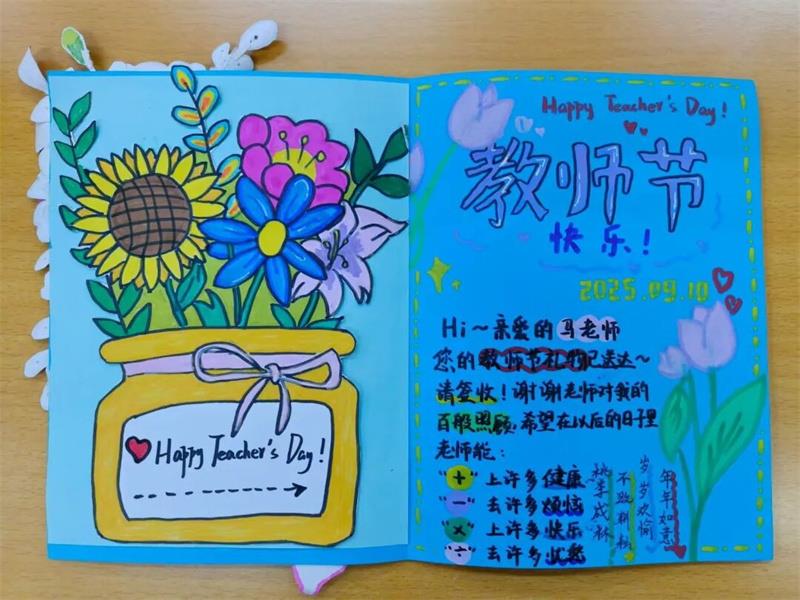 Happy Teacher's Day!
Happy Teacher's Day!
教师节
快乐!
2025.09.10
Hi~亲爱的马老师
您的教师节礼物已送达~
请签收!谢谢老师对我的
百般照顾,希望在以后的日子里
老师能:
"+"上许多健康
"-"去许多烦恼
"×"上许多快乐
"÷"去许多忧愁
桃李成林
不败
岁岁欢愉
年年如意